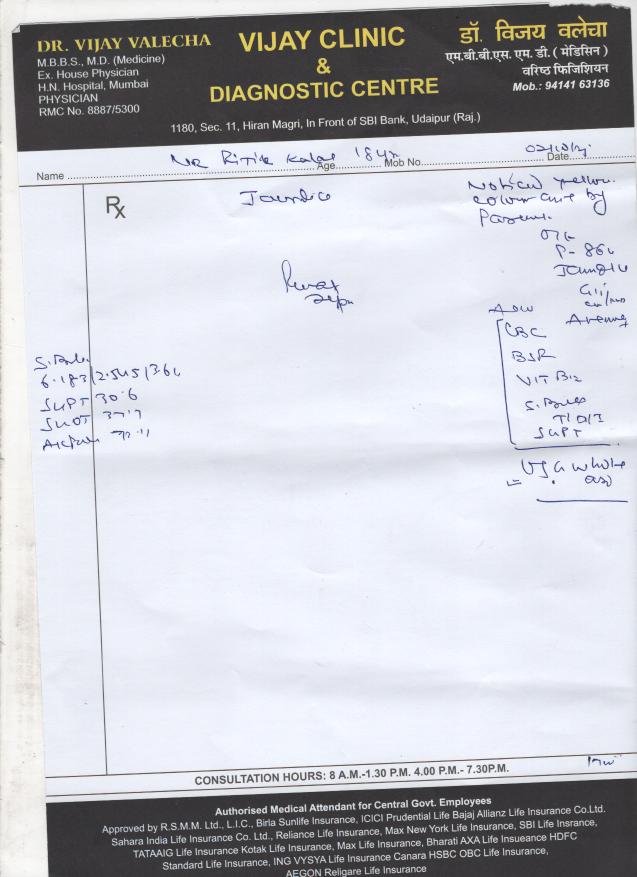 DR. VIJAY VALECHA
M.B.B.S., M.D. (Medicine)
Ex. House Physician
H.N. Hospital, Mumbai
PHYSICIAN
RMC No. 8887/5300
VIJAY CLINIC
&
DIAGNOSTIC CENTRE
डॉ. विजय वलेचा
एम.बी.बी.एस. एम. डी. ( मेडिसिन )
वरिष्ठ फिजिशियन
Mob.: 94141 63136
1180, Sec. 11, Hiran Magri, In Front of SBI Bank, Udaipur (Raj.)
Name Mr Ritik Age 18 Mob No. Date
Rx
Jaundice
Noticed yellow
colour by
P - 86
Jaundice
Adv
CBC
BSR
VIT B12
S.
T/D/I
SGPT
USG whole
abd
S.
6.183/2.545/3.6
SGPT 30.6
SGOT 37.7
CONSULTATION HOURS: 8 A.M.-1.30 P.M. 4.00 P.M.- 7.30P.M.
Authorised Medical Attendant for Central Govt. Employees
Approved by R.S.M.M. Ltd., L.I.C., Birla Sunlife Insurance, ICICI Prudential Life Bajaj Allianz Life Insurance Co.Ltd.
Sahara India Life Insurance Co. Ltd., Reliance Life Insurance, Max New York Life Insurance, SBI Life Insrance,
TATAAIG Life Insurance Kotak Life Insurance, Max Life Insurance, Bharati AXA Life Insueance HDFC
Standard Life Insurance, ING VYSYA Life Insurance Canara HSBC OBC Life Insurance,
AEGON Religare Life Insurance